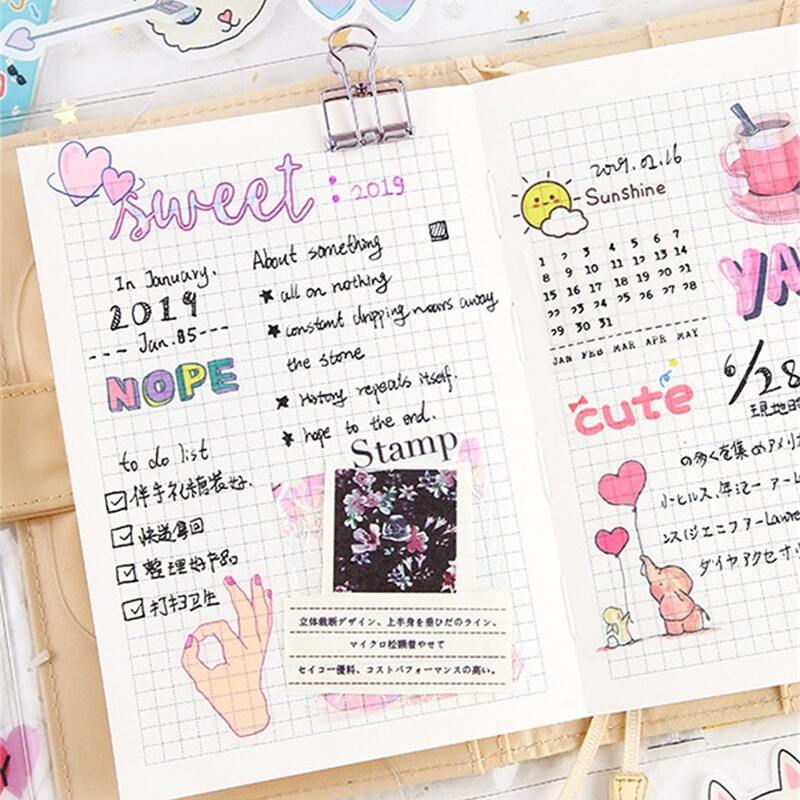 sweet : 2019
In January.
2019
Jan.05
NOPE
to do list
伴手礼糖装好.
快递拿回
整理好产品
打扫卫生
About something
all on nothing
constant dripping wears away
the stone
History repeats itself.
hope to the end.
Stamp
立体裁断デザイン、上半身を垂ひだのライン、
マイクロ松顕着やせて
セイコー優料、コストパフォーマンスの高い。
2019.02.16
Sunshine
1 2 3 4 5 6 7
8 9 10 11 12 13 14
15 16 17 18 19 20 21
22 23 24 25 26 27 28
29 30 31
JAN FEB MAR APR MAY
YA
cute
6/28
現地時
の多くを集めアメリ
ダイヤアクセサ